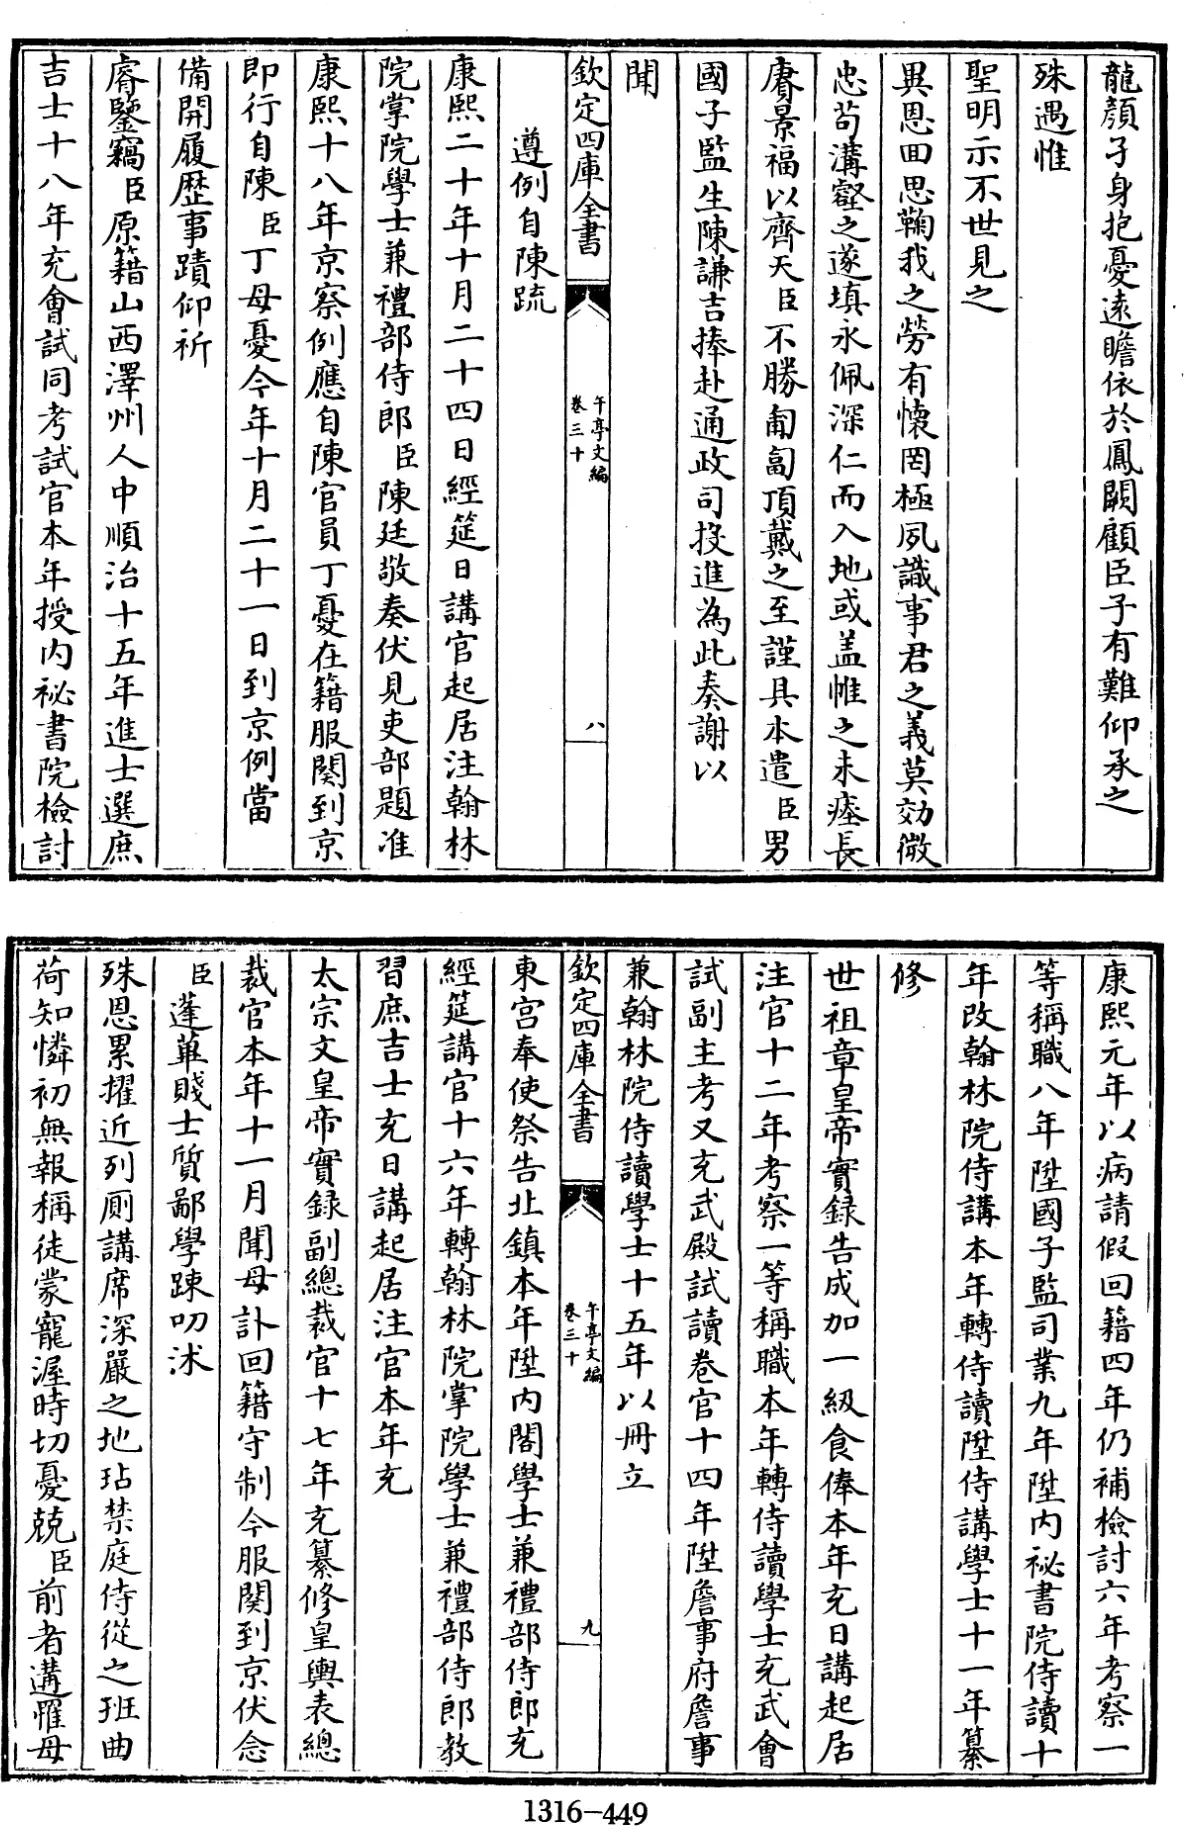 龍顏孑身抱憂遠瞻依於鳳闕顧臣子有難仰承之
殊遇惟
聖明示不世見之
異恩田思鞠我之勞有懷罔極夙識事君之義莫効微
忠苟溝壑之遂填永佩深仁而入地或盖帷之未瘞長
賡景福以齊天臣不勝匍匐頂戴之至謹具本遣臣男
國子監生陳謙吉捧赴通政司投進為此奏謝以
聞
欽定四庫全書
午亭文編
卷三十
八
遵例自陳疏
康熙二十年十月二十四日經筵日講官起居注翰林
院掌院學士兼禮部侍郎臣陳廷敬奏伏見吏部題准
康熙十八年京察例應自陳官員丁憂在籍服闋到京
即行自陳臣丁母憂今年十月二十一日到京例當
備開履歷事蹟仰祈
睿鑒竊臣原籍山西澤州人中順治十五年進士選庶
吉士十八年充會試同考試官本年授內祕書院檢討
康熙元年以病請假回籍四年仍補檢討六年考察一
等稱職八年陞國子監司業九年陞內祕書院侍讀十
年改翰林院侍講本年轉侍讀陞侍講學士十一年纂
修
世祖章皇帝實録告成加一級食俸本年充日講起居
注官十二年考察一等稱職本年轉侍讀學士充武會
試副主考又充武殿試讀卷官十四年陞詹事府詹事
兼翰林院侍讀學士十五年以冊立
欽定四庫全書
午亭文編
卷三十
九
東宮奉使祭告北鎮本年陞內閣學士兼禮部侍郎充
經筵講官十六年轉翰林院掌院學士兼禮部侍郎教
習庶吉士充日講起居注官本年充
太宗文皇帝實録副總裁官十七年充纂修皇輿表總
裁官本年十一月聞母訃回籍守制今服闋到京伏念
臣蓬蓽賤士質鄙學踈叨沐
殊恩累擢近列厠講席深嚴之地玷禁庭侍從之班曲
荷知憐初無報稱徒蒙寵渥時切憂兢臣前者遘罹母
1316-449